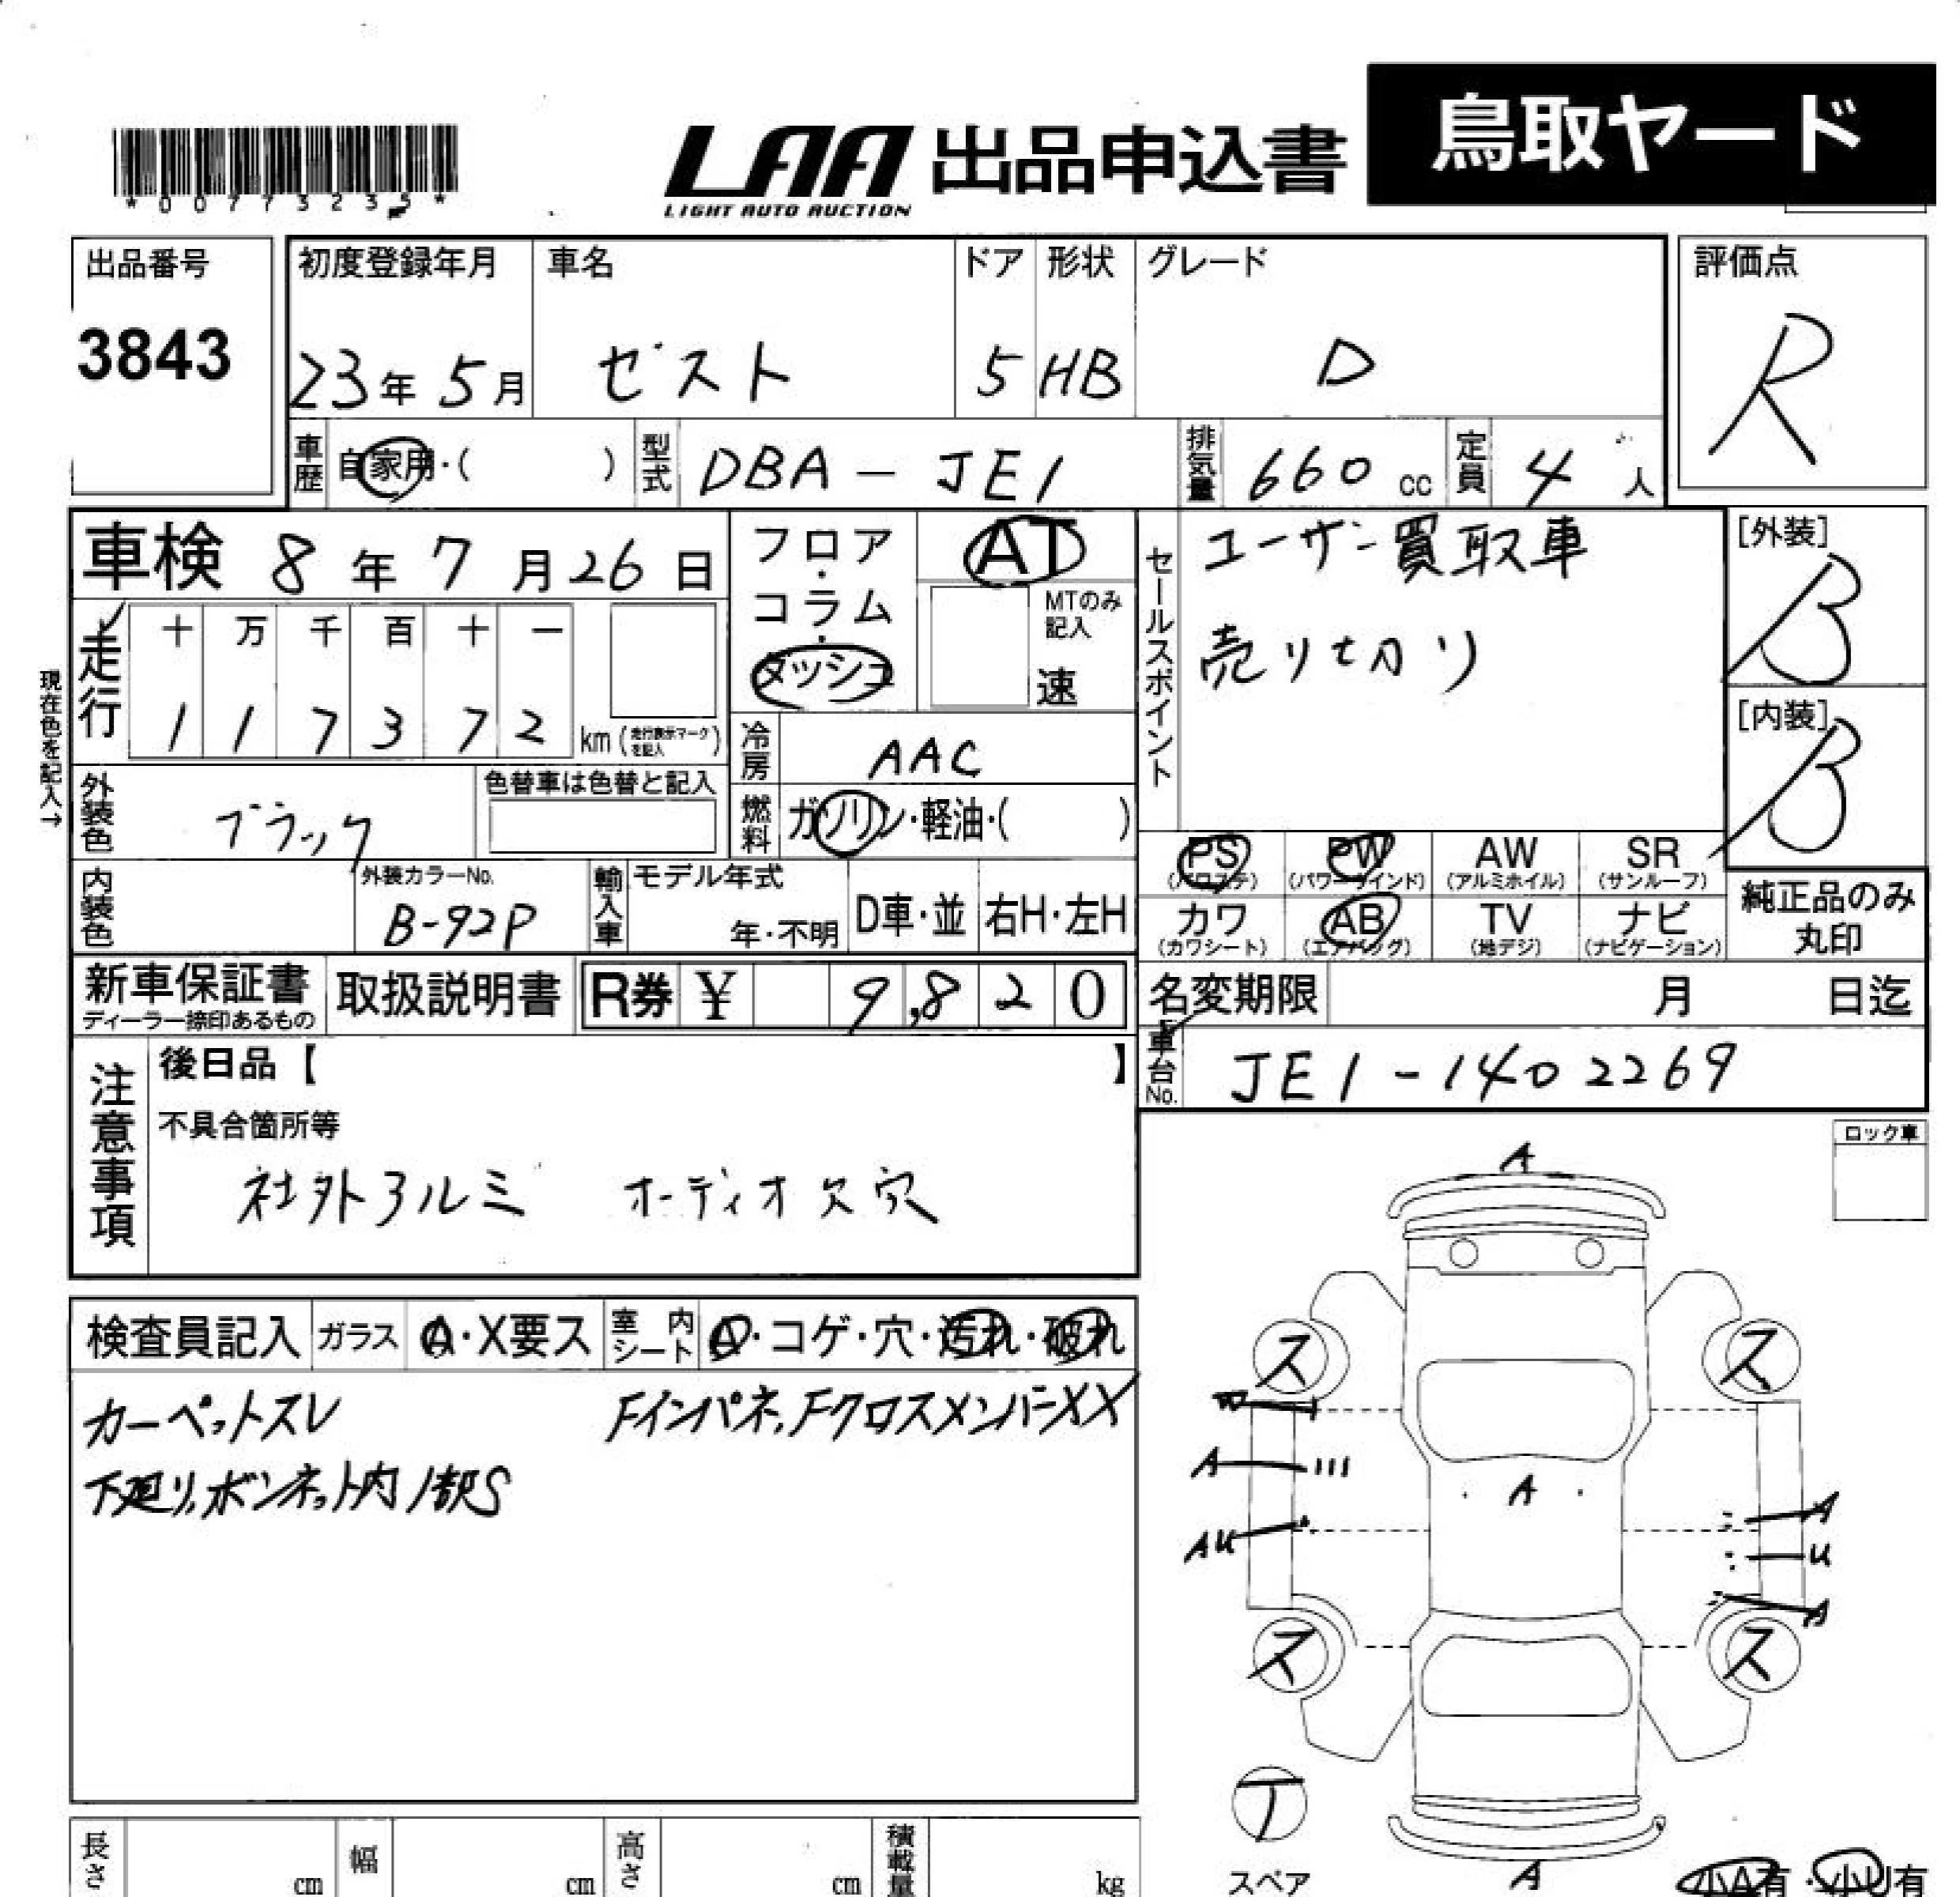 鳥取ヤード
LAA 出品申込書
LIGHT AUTO AUCTION
*00773235*
出品番号
3843
初度登録年月
23年5月
車名
ゼスト
ドア
5
形状
HB
グレード
D
評価点
R
車歴 自家用・( )
型式 DBA-JE1
排気量 660 cc
定員 4 人
車検 8年7月26日
フロア・コラム・ダッシュ
AT
MTのみ記入
速
セールスポイント
ユーザー買取車
売り切り
[外装]
B
[内装]
B
現在色を記入→
走行
十 万 千 百 十 一
1 1 7 3 7 2 km(走行表示マークを記入)
冷房 AAC
燃料 ガソリン・軽油・( )
外装色 ブラック
色替車は色替と記入
内装色
外装カラーNo.
B-92P
輸入車
モデル年式
年・不明
D車・並
右H・左H
PS (パワステ)
PW (パワーウインド)
AW (アルミホイル)
SR (サンルーフ)
カワ (カワシート)
AB (エアバッグ)
TV (地デジ)
ナビ (ナビゲーション)
純正品のみ丸印
新車保証書
ディーラー捺印あるもの
取扱説明書
R券 ¥ 9,820
名変期限 月 日迄
車台No. JE1-1402269
注意事項
後日品【 】
不具合箇所等
社外アルミ オーディオ欠穴
ロック車
検査員記入 ガラス A・X要ス 室内シート A・コゲ・穴・汚れ・破れ
カーペットスレ Fインパネ,FクロスメンバーXX
下廻り,ボンネット内1部S
A
ス ス
W
A
A
AU
A
U
A
ス ス
スペア
A
小A有・小U有
長さ cm
幅 cm
高さ cm
積載量 kg